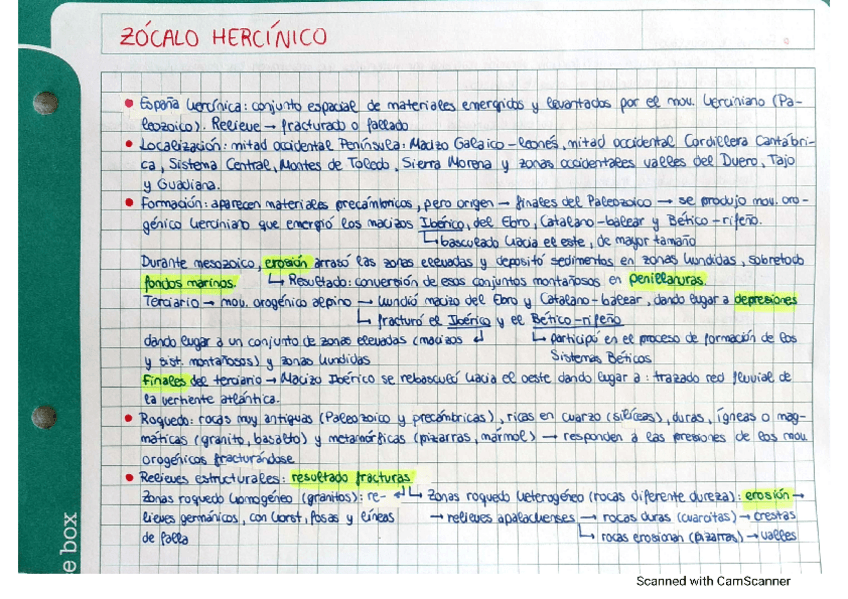 ZÓCALO HERCÍNICO
• España hercínica: conjunto espacial de materiales emergidos y levantados por el mov. herciniano (Pa-
leozoico). Relieve → fracturado o fallado
• Localización: mitad occidental Península: Macizo Galaico-leonés, mitad occidental Cordillera Cantábri-
ca, Sistema Central, Montes de Toledo, Sierra Morena y zonas occidentales valles del Duero, Tajo
y Guadiana.
• Formación: aparecen materiales precámbricos, pero origen → finales del Paleozoico → se produjo mov. oro-
génico herciniano que emergió los macizos Ibérico, del Ebro, Catalano-balear y Bético-rifeño.
↳ basculado hacia el este, de mayor tamaño
Durante mesozoico, erosión arrasó las zonas elevadas y depositó sedimentos en zonas hundidas, sobretodo
fondos marinos. ↳ Resultado: conversión de esos conjuntos montañosos en penillanuras.
Terciario → mov. orogénico alpino → hundió macizo del Ebro y Catalano-balear, dando lugar a depresiones
↳ fracturó el Ibérico y el Bético-rifeño
dando lugar a un conjunto de zonas elevadas (macizos ↲ ↳ participó en el proceso de formación de los
y sist. montañosos) y zonas hundidas Sistemas Béticos
Finales del terciario → Macizo Ibérico se rebasculó hacia el oeste dando lugar a: trazado red fluvial de
la vertiente atlántica.
• Roquedo: rocas muy antiguas (Paleozoico y precámbricas), ricas en cuarzo (silíceas), duras, ígneas o mag-
máticas (granito, basalto) y metamórficas (pizarras, mármol) → responden a las presiones de los mov.
orogénicos fracturándose
• Relieves estructurales: resultado fracturas
Zonas roquedo homogéneo (granitos): re- ↲ ↳ Zonas roquedo heterogéneo (rocas diferente dureza): erosión →
lieves germánicos, con horst, fosas y líneas → relieves apalachenses → rocas duras (cuarcitas) → crestas
de falla ↳ rocas erosionan (pizarras) → valles
e box
Scanned with CamScanner